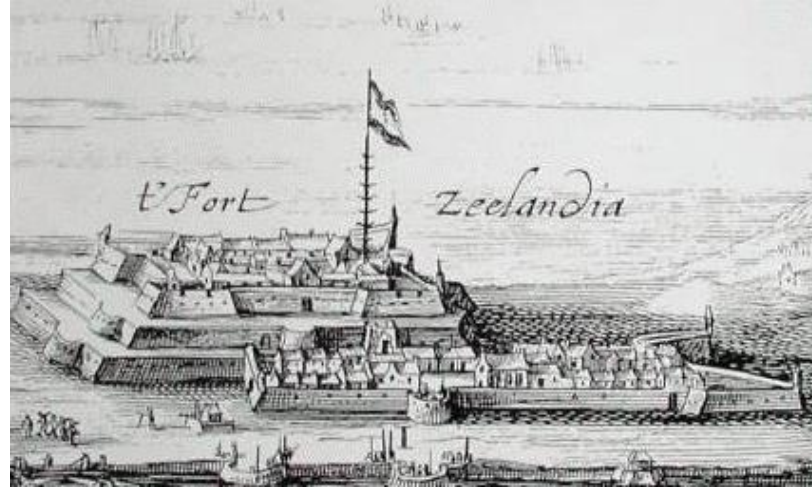 t'Fort Zeelandia